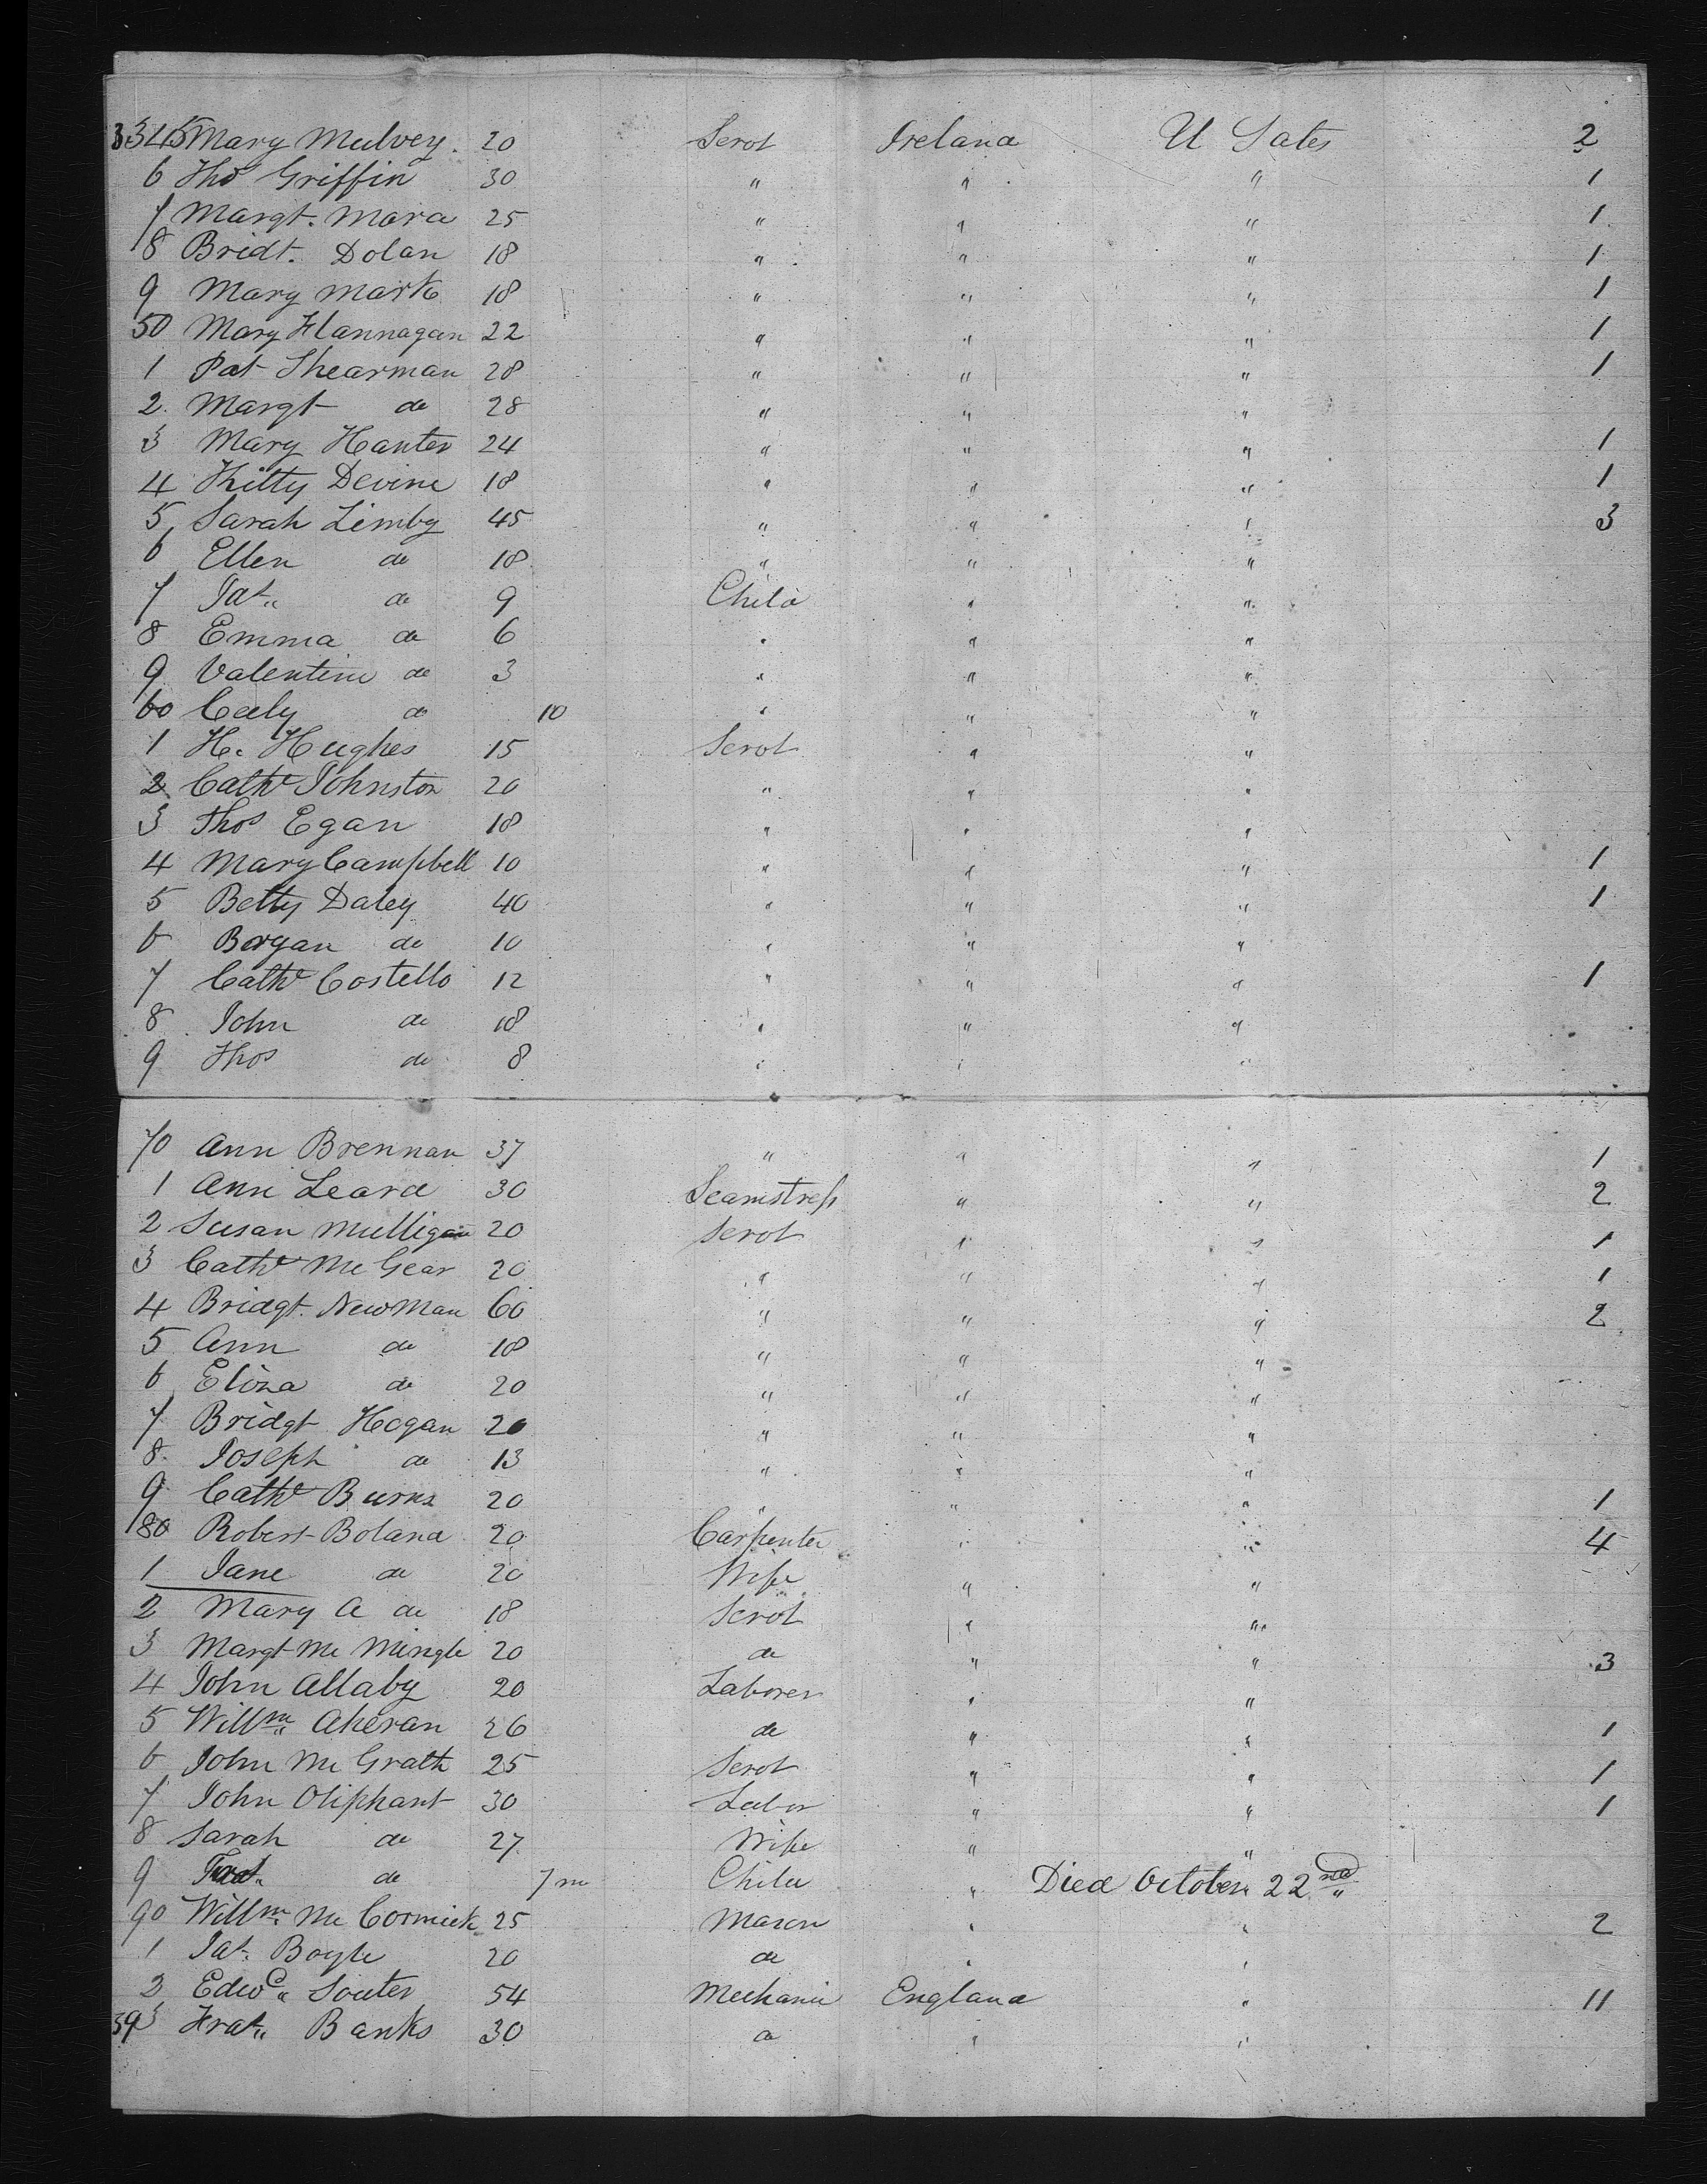 3345 Mary Mulvey. 20 Servt Ireland U Sates 2
6 Tho Griffin 30 " " " 1
7 Margt. Mara 25 " " " 1
8 Bridt. Dolan 18 " " " 1
9 Mary Mark 18 " " " 1
50 Mary Flannagan 22 " " " 1
1 Pat Shearman 28 " " " 1
2. Margt do 28 " " "
3 Mary Hanter 24 " " " 1
4 Kitty Devine 18 " " " 1
5 Sarah Limby 45 " " " 3
6 Ellen do 18 " " "
7 Pat" do 9 Child " "
8 Emma do 6 " " "
9 Valentine do 3 " " "
60 Cecly do 10 " " "
1 H. Hughes 15 Servt " "
2 Cathe Johnston 20 " " "
3 Thos Egan 18 " " "
4 Mary Campbell 10 " " " 1
5 Betty Daley 40 " " " 1
6 Bryan do 10 " " "
7 Cathe Costello 12 " " " 1
8 John do 18 " " "
9 Thos do 8 " " "
70 Ann Brennan 37 " " " 1
1 Ann Leard 30 Seamstress " " 2
2 Susan Mulligan 20 Servt " " 1
3 Cathe Mc Gear 20 " " " 1
4 Bridgt. NewMan 60 " " " 2
5 Ann do 18 " " "
6 Eliza do 20 " " "
7 Bridgt Hogan 20 " " "
8. Joseph do 13 " " "
9 Cathe Burns 20 " " " 1
80 Robert Boland 20 Carpenter " " 4
1 Jane do 20 Wife " "
2 Mary A do 18 Servt " "
3 Margt Mc Mingle 20 do " " 3
4 John Allaby 20 Laborer " "
5 Willm" Aheran 26 do " " 1
6 John Mc Grath 25 Servt " " 1
7 John Oliphant 30 Labor " " 1
8 Sarah do 27 Wife " "
9 do 7 m Child " Died October 22nd"
90 Willm" Mc Cormick 25 Mason " " 2
1 Pat. Boyle 20 do " "
2 Edwd" Souter 54 Mechanic England " 11
3 Frat" Banks 30 do " "